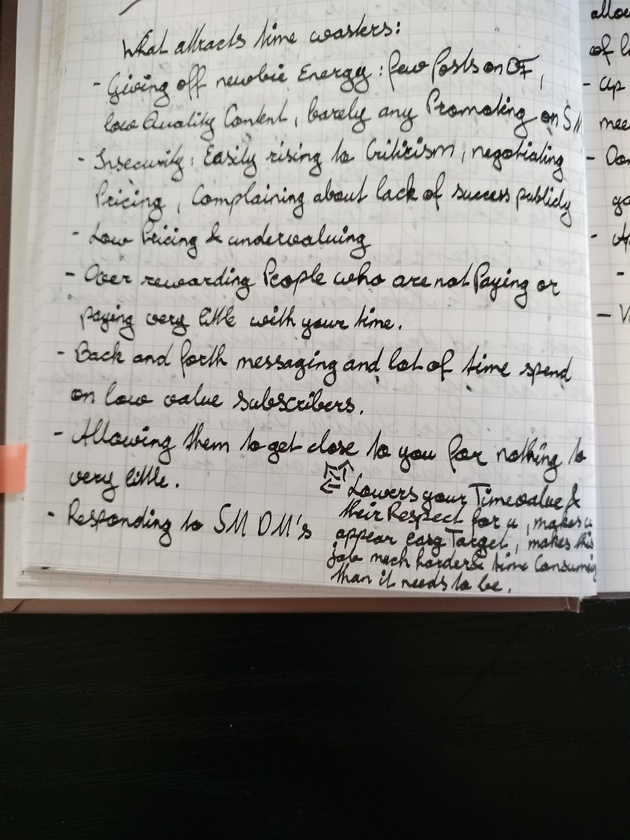 What attracts time wasters:
- Giving off newbie Energy: few Posts on OF,
low Quality Content, barely any Promoting on SM
- Insecurity: Easily rising to Criticism, negotiating
Pricing, Complaining about lack of success publicly
- Low Pricing & undervaluing
- Over rewarding People who are not Paying or
paying very little with your time.
- Back and forth messaging and lot of time spend
on low value subscribers.
- Allowing them to get close to you for nothing to
very little.
Lowers your Timevalue &
their Respect for u, makes u
- Responding to SM DM's
appear easy Target, makes this
job much harder & time Consuming
than it needs to be.
allow
of l
- Up
mee
- Don
go
-
-
-